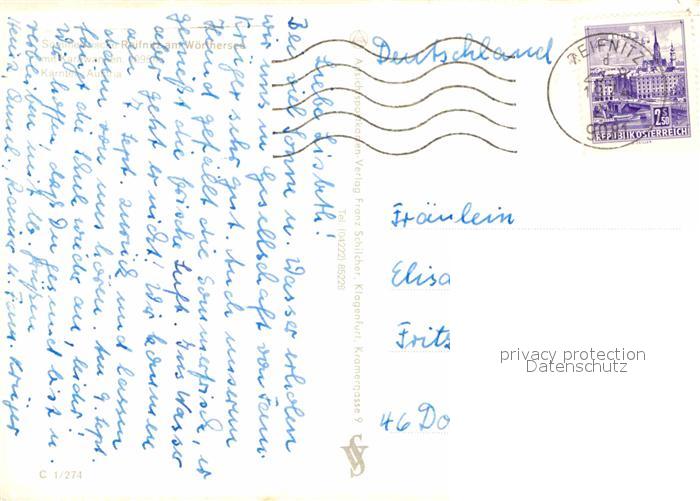 Liebe Lisbeth!
Bei viel Sonne u. Wasser erholen
wir uns in Gesellschaft von Fam.
Krüger sehr gut. Auch unserem
Hund gefällt die Sommerfrische, er
genießt die frische Luft. Ins Wasser
aber geht er nicht! Wir kommen
am 7. Sept. zurück und lassen
dann von uns hören. Am 9. Sept.
fängt die Schule wieder an, leider!
Wir hoffen, daß Du gesund bist u.
verbleiben mit lb. Grüßen
Krüger
Reifnitz am Wörthersee
Kärnten, Austria
C 1/274
Ansichtskarten-Verlag Franz Schilcher, Klagenfurt, Kramergasse 9
Tel. (04222) 85228
Deutschland
Fräulein
Elisa
Fritz
46 Do
REIFNITZ
2.50 S
REPUBLIK ÖSTERREICH
privacy protection
Datenschutz